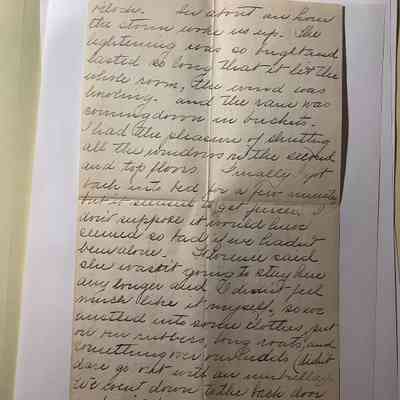 o'clock. In about an hour
the storm woke us up. The
lightening was so bright and
lasted so long that it lit the
whole room, the wind was
howling. and the rain was
coming down in buckets.
I had the pleasure of shutting
all the windows on the second
and top floors. Finally I got
back into bed for a few minutes
but it seemed to get fiercer. I
don't suppose it would have
seemed so bad if we hadn't
been alone. Florence said
she wasn't going to stay here
any longer and I didn't feel
much like it myself, so we
hustled into some clothes, put
on our rubbers, long coats, and
something over our heads (didn't
dare go out with an umbrella)
We went down to the back door